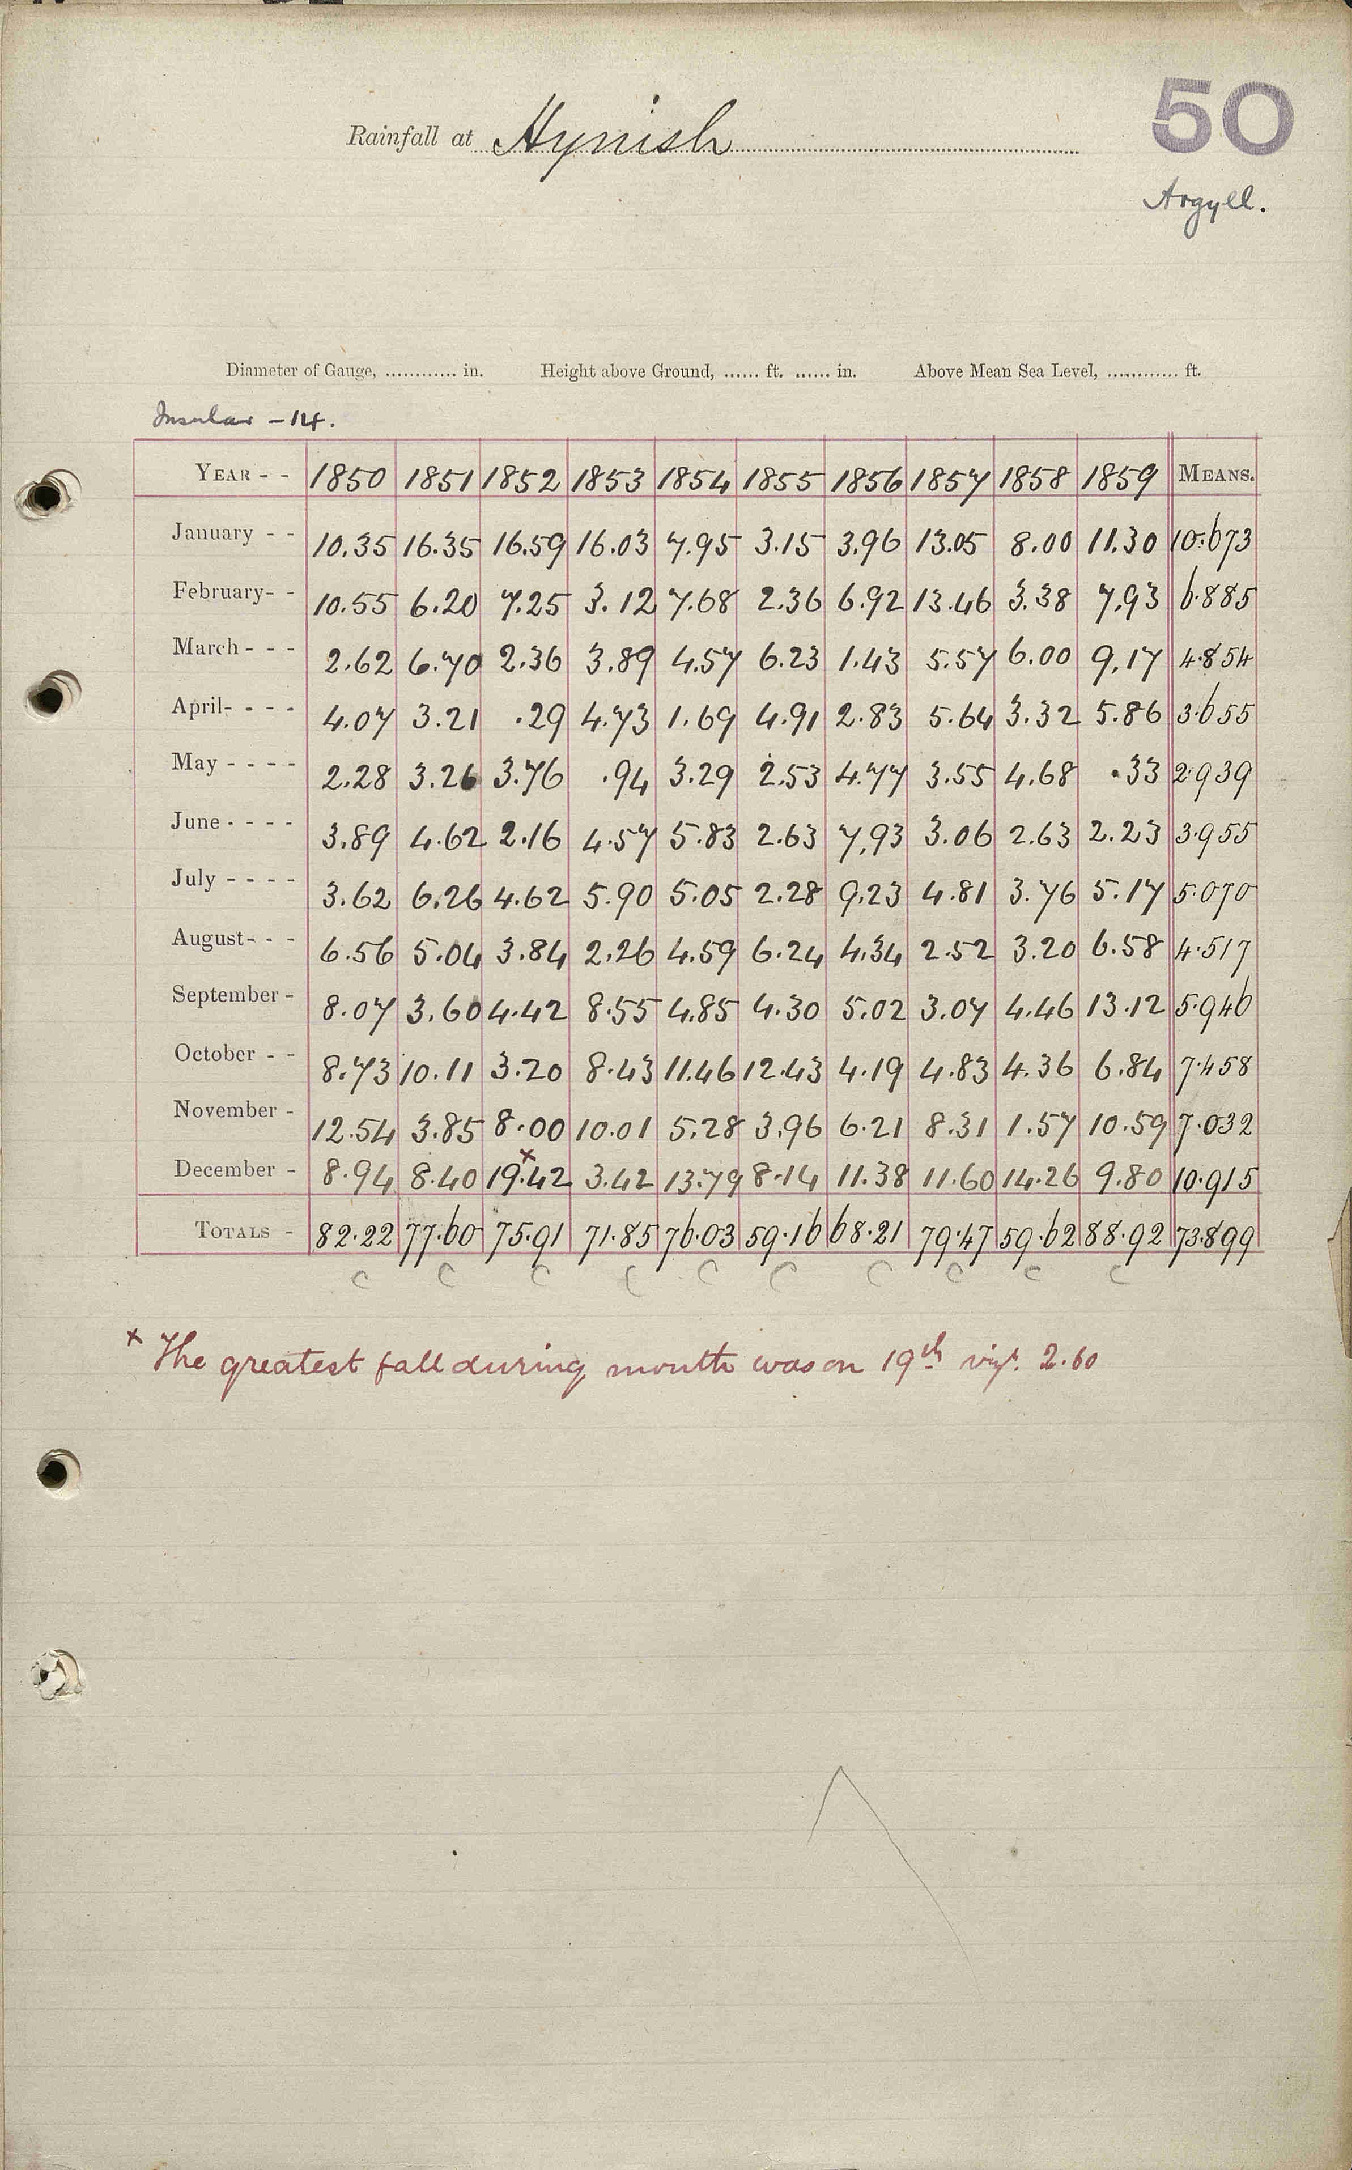 50
Rainfall at Hynish
Argyll.
Diameter of Gauge, ............ in. Height above Ground, ...... ft. ...... in. Above Mean Sea Level, ............ ft.
Insular - 14.
YEAR - - 1850 1851 1852 1853 1854 1855 1856 1857 1858 1859 MEANS.
January - - 10.35 16.35 16.59 16.03 7.95 3.15 3.96 13.05 8.00 11.30 10.673
February- - 10.55 6.20 7.25 3.12 7.68 2.36 6.92 13.46 3.38 7.93 6.885
March - - - 2.62 6.70 2.36 3.89 4.57 6.23 1.43 5.57 6.00 9.17 4.854
April- - - - 4.07 3.21 .29 4.73 1.69 4.91 2.83 5.64 3.32 5.86 3.655
May - - - - 2.28 3.26 3.76 .94 3.29 2.53 4.77 3.55 4.68 .33 2.939
June - - - - 3.89 4.62 2.16 4.57 5.83 2.63 7.93 3.06 2.63 2.23 3.955
July - - - - 3.62 6.26 4.62 5.90 5.05 2.28 9.23 4.81 3.76 5.17 5.070
August- - - 6.56 5.04 3.84 2.26 4.59 6.24 4.34 2.52 3.20 6.58 4.517
September - 8.07 3.60 4.42 8.55 4.85 4.30 5.02 3.07 4.46 13.12 5.946
October - - 8.73 10.11 3.20 8.43 11.46 12.43 4.19 4.83 4.36 6.84 7.458
November - 12.54 3.85 8.00 10.01 5.28 3.96 6.21 8.31 1.57 10.59 7.032
December - 8.94 8.40 19.42 x 3.42 13.79 8.14 11.38 11.60 14.26 9.80 10.915
TOTALS - 82.22 77.60 75.91 71.85 76.03 59.16 68.21 79.47 59.62 88.92 73.899
c c c c c c c c c c
x The greatest fall during month was on 19th vizt. 2.60